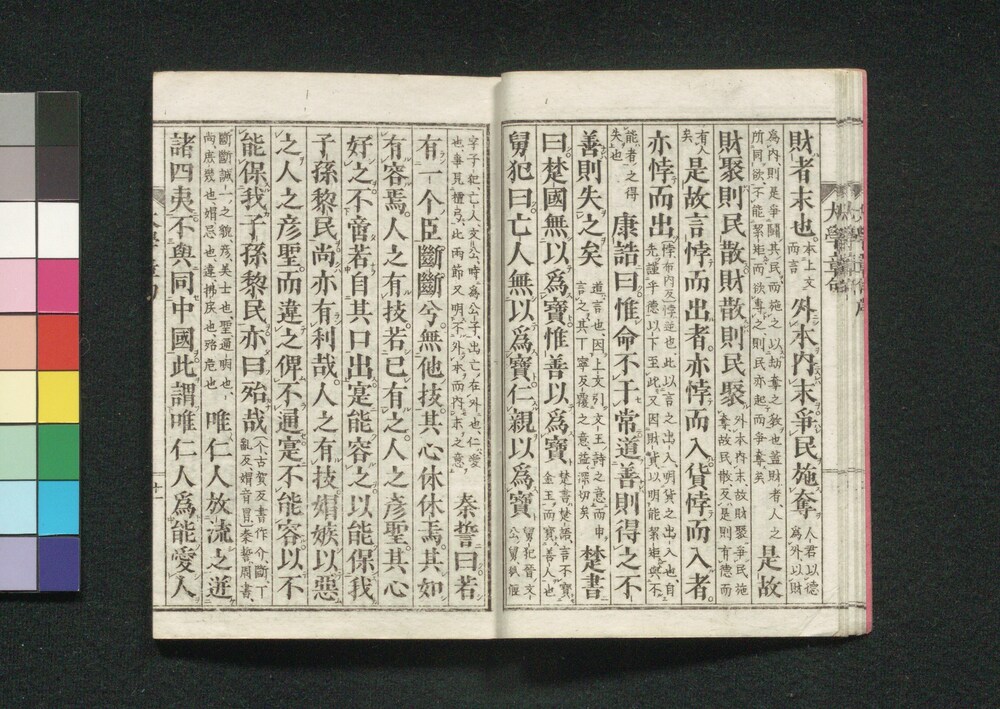 財者末也本上文而言外本內末爭民施奪人君以德爲外以財
爲內則是爭鬪其民而施之以劫奪之敎也蓋財者人之所同欲不能絜矩而欲專之則民亦起而爭奪矣是故
財聚則民散財散則民聚外本內末故財聚爭民施奪故民散反是則有德而
有人矣是故言悖而出者亦悖而入貨悖而入者
亦悖而出悖布內反悖逆也此以言之出入明貨之出入也自先謹乎德以下至此又因財貨以明能絜矩與不
能者之得失也康誥曰惟命不于常道善則得之不
善則失之矣道言也因上文引文王詩之意而申言之其丁寧反覆之意益深切矣楚書
曰楚國無以爲寶惟善以爲寶楚書楚語言不寶金玉而寶善人也
舅犯曰亡人無以爲寶仁親以爲寶舅犯晉文公舅狐偃
字子犯亡人文公時爲公子出亡在外也仁愛也事見檀弓此兩節又明不外本而內末之意秦誓曰若
有一个臣斷斷兮無他技其心休休焉其如
有容焉人之有技若己有之人之彥聖其心
好之不啻若自其口出寔能容之以能保我
子孫黎民尚亦有利哉人之有技媢嫉以惡
之人之彥聖而違之俾不通寔不能容以不
能保我子孫黎民亦曰殆哉个古賀反書作介斷丁亂反媢音冒秦誓周書
斷斷誠一之貌彥美士也聖通明也尚庶幾也媢忌也違拂戾也殆危也唯仁人放流之迸
諸四夷不與同中國此謂唯仁人爲能愛人